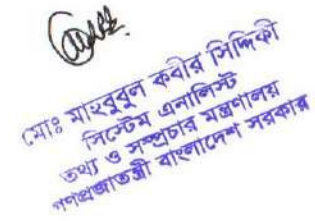 মোঃ মাহবুবুল কবীর সিদ্দিকী
সিস্টেম এনালিস্ট
তথ্য ও সম্প্রচার মন্ত্রণালয়
গণপ্রজাতন্ত্রী বাংলাদেশ সরকার